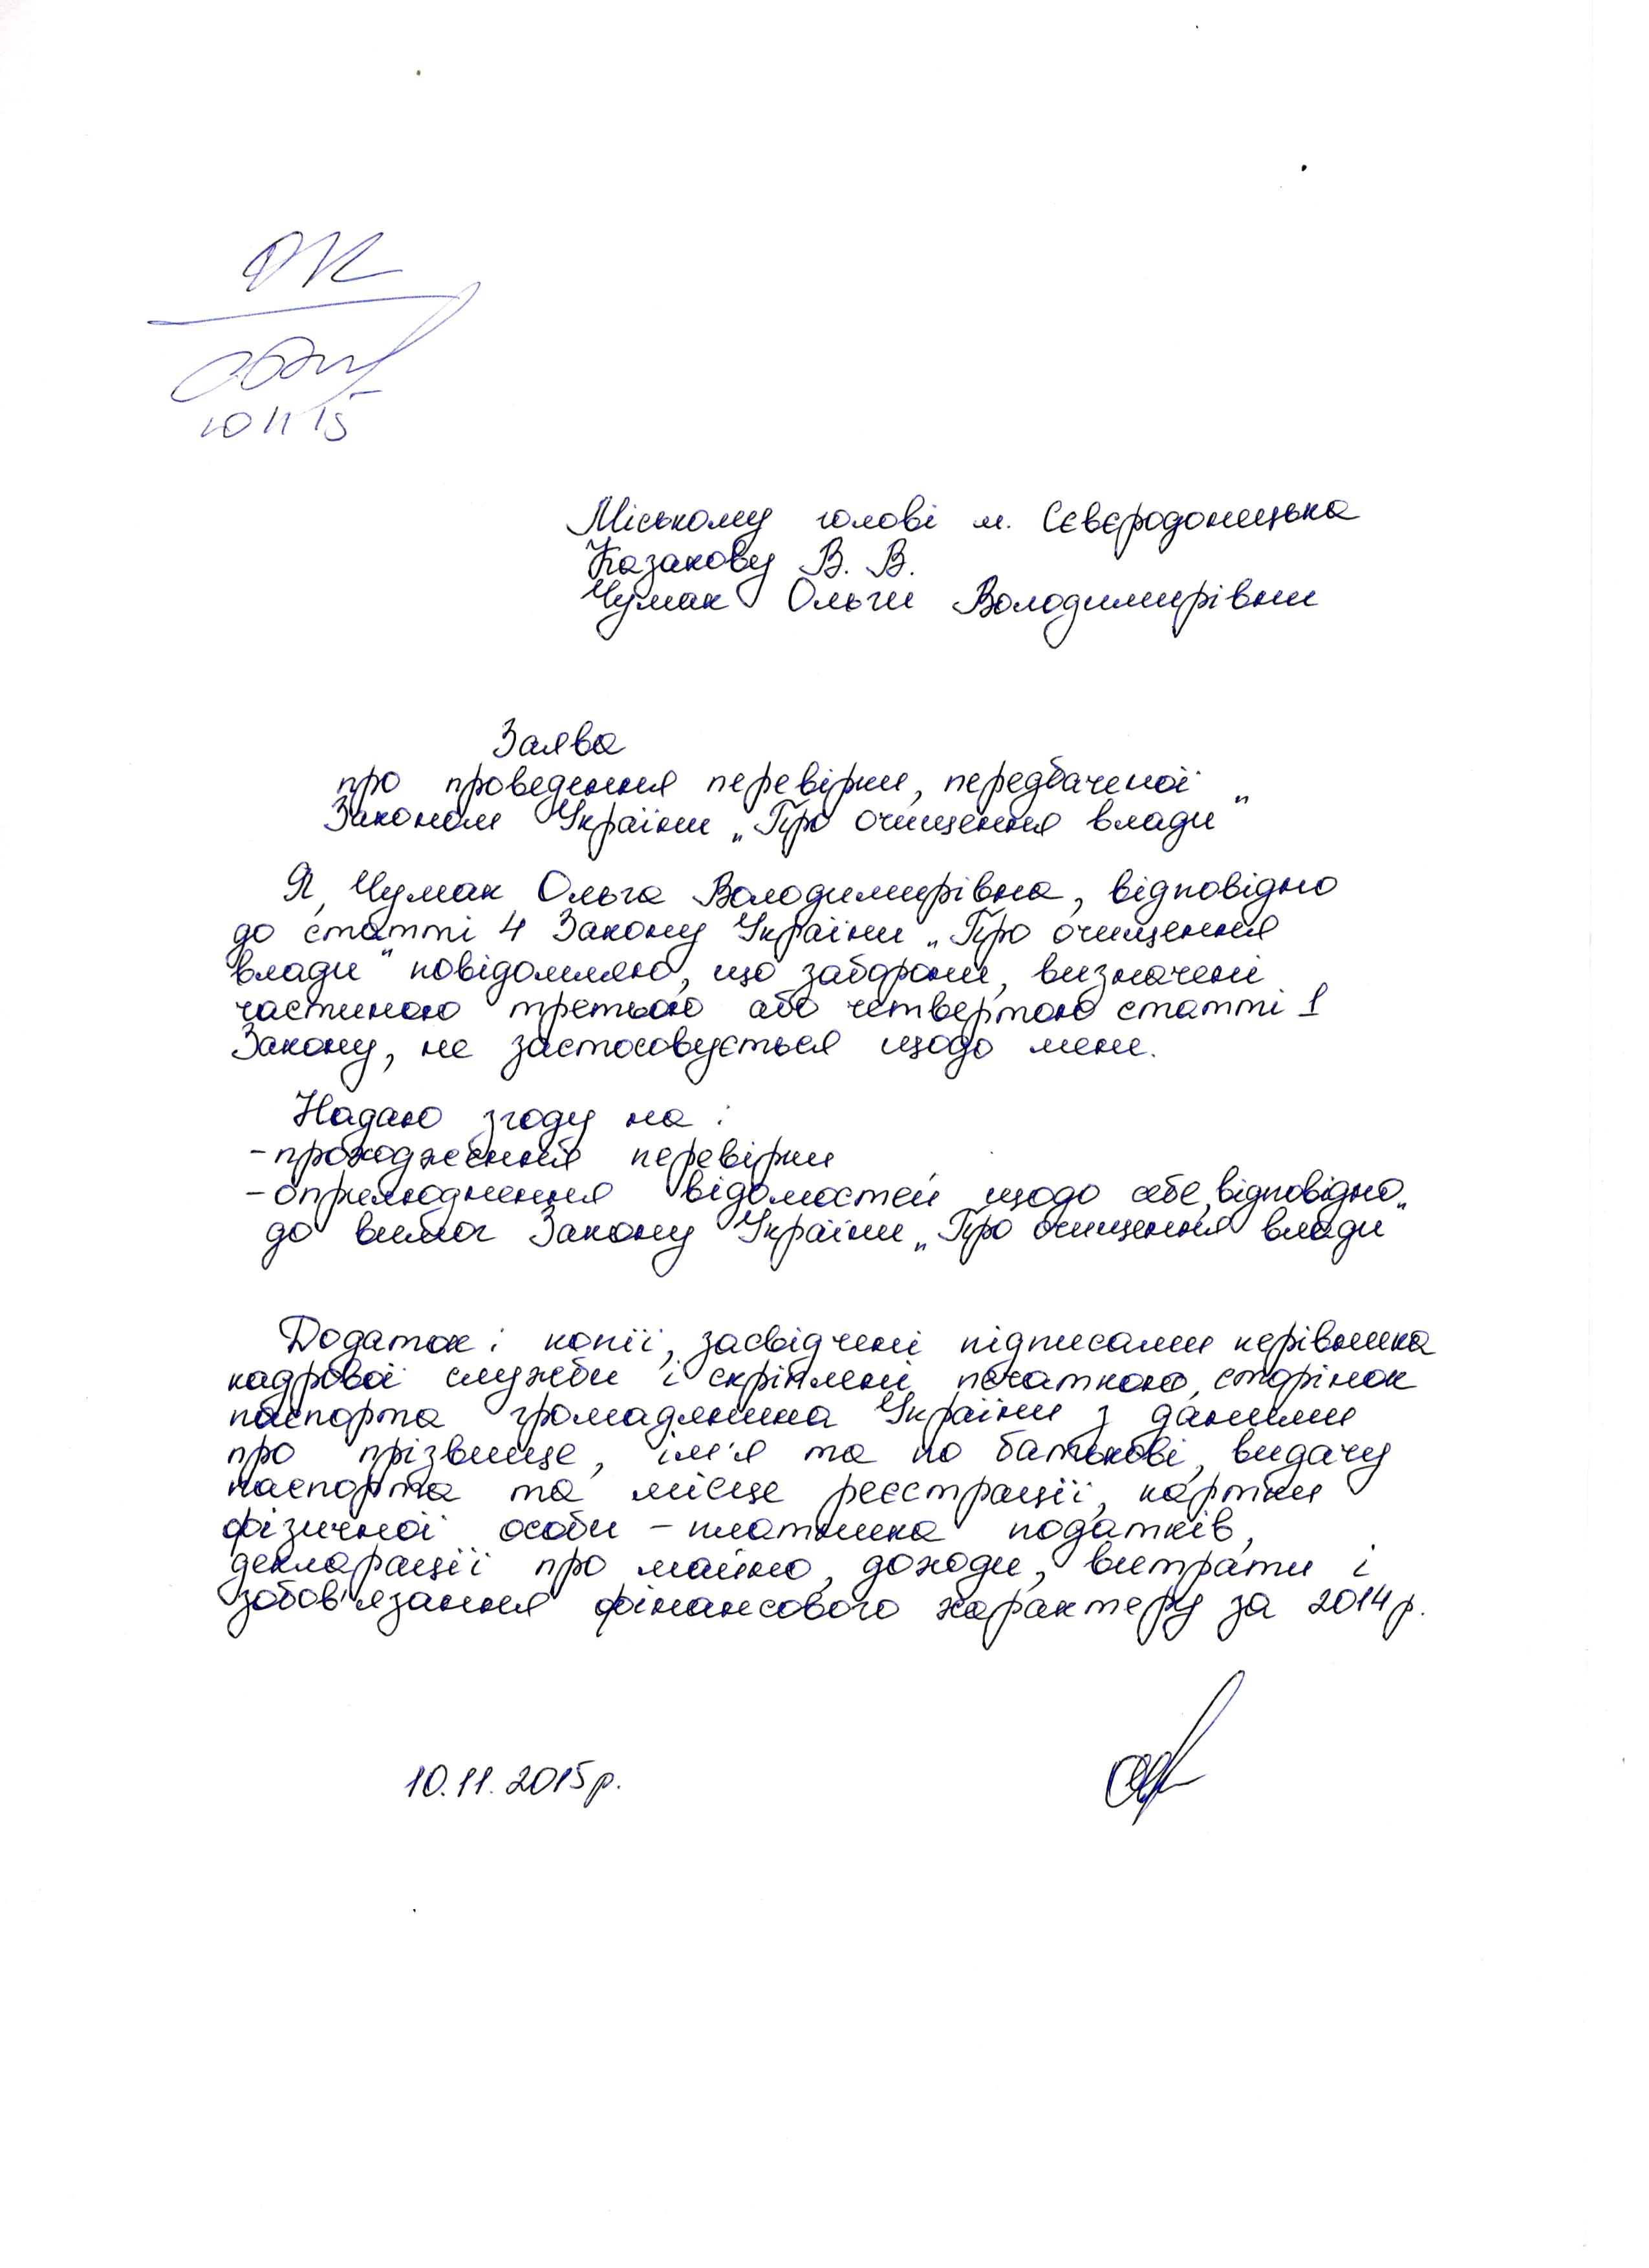 10 11 15
Міському голові м. Сєвєродонецька
Казакову В. В.
Чумак Ольги Володимирівни
Заява
про проведення перевірки, передбаченої
Законом України „Про очищення влади"
Я, Чумак Ольга Володимирівна, відповідно
до статті 4 Закону України „Про очищення
влади" повідомляю, що заборони, визначені
частиною третьою або четвертою статті 1
Закону, не застосовується щодо мене.
Надаю згоду на:
- проходження перевірки
- оприлюднення відомостей щодо себе, відповідно
до вимог Закону України „Про очищення влади"
Додаток: копії, засвідчені підписами керівника
кадрової служби і скріплені печаткою, сторінок
паспорта громадянина України з даними
про прізвище, ім'я та по батькові, видачу
паспорта та місце реєстрації, картки
фізичної особи - платника податків,
декларації про майно, доходи, витрати і
зобов'язання фінансового характеру за 2014 р.
10.11.2015 р.